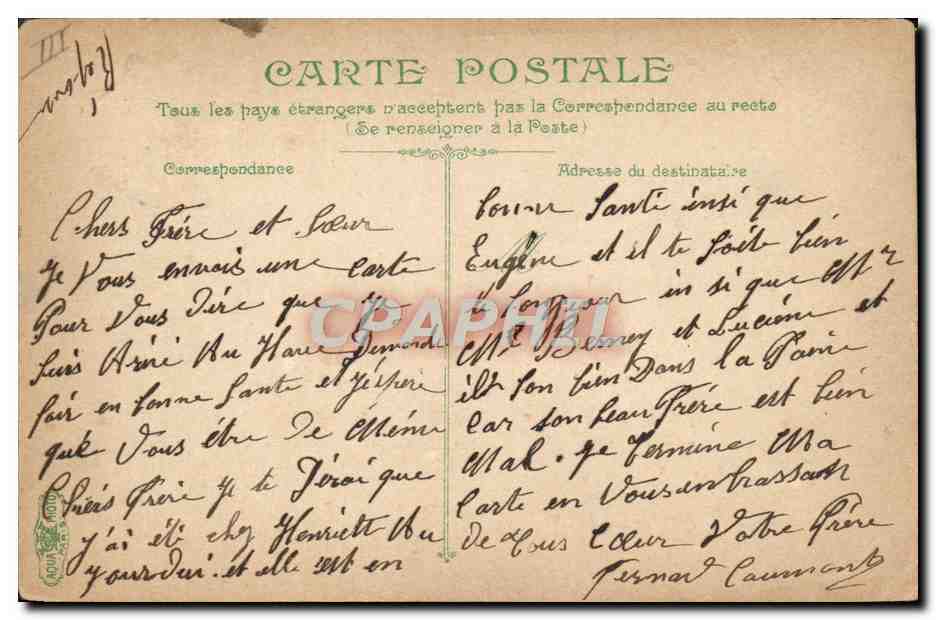 III
CARTE POSTALE
Tous les pays étrangers n'acceptent pas la Correspondance au recto
(Se renseigner à la Poste)
Correspondance
Adresse du destinataire
Chers Frére et Sœur
Je Vous envois une Carte
Pour Vous Dire que je
Suis Arivé Au Havre Dimanche
soir en bonne Sante et J'éspére
que Vous étre De Méme
Chérs Frére Je te Dirai que
j'ai été chez Henriett Au
jourdui et elle est en
bonne Santé insi que
Eugéne et il te Soite bien
le bonjour insi que Mr
Me Berney et Luciéne et
ils son bien Dans la Paine
Car son beau Frére est bien
Mal. Je Termine Ma
Carte en Vous enbrassan
De tous Cœur Votre Frére
Fernand Caumont
AQUA PHOTO
PARIS
CPAPHIL